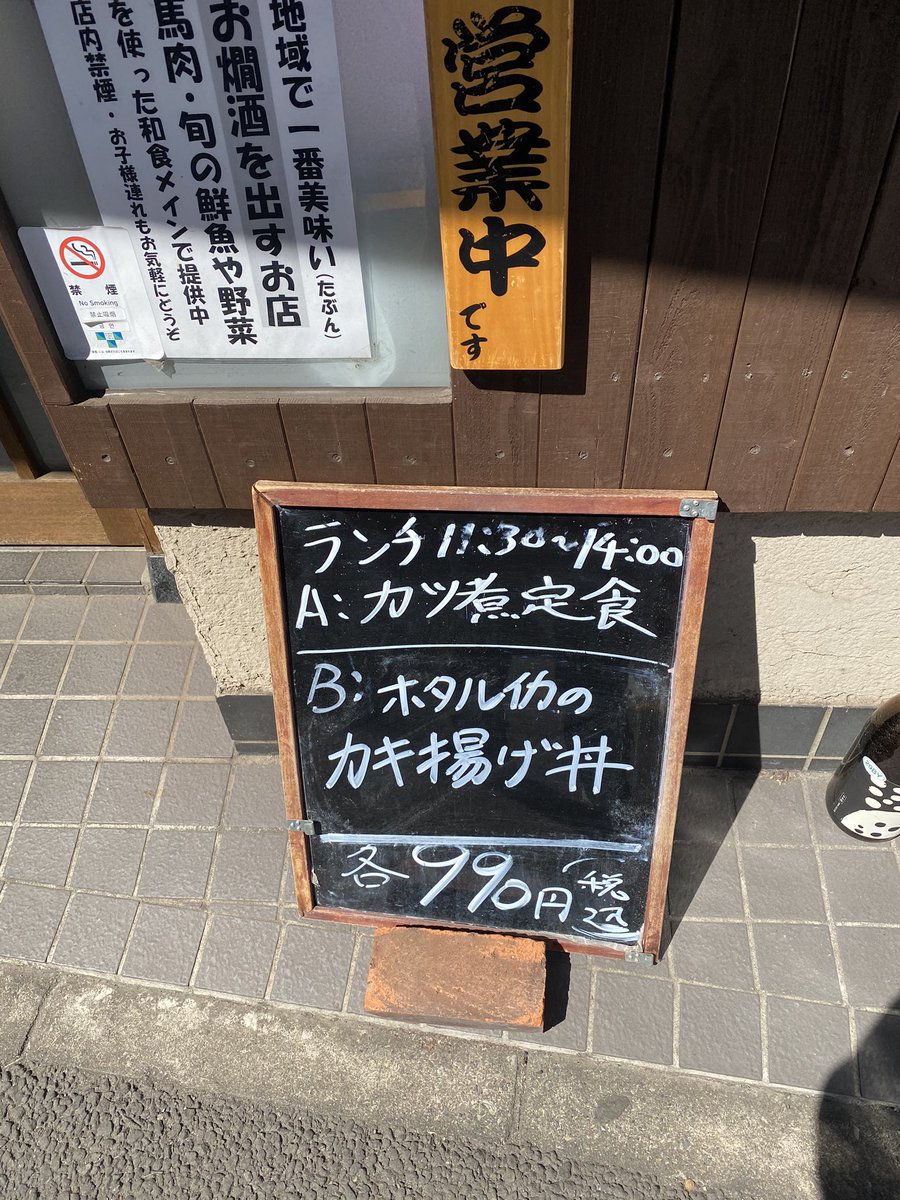 地域で一番美味い(たぶん)
お燗酒を出すお店
馬肉・旬の鮮魚や野菜
を使った和食メインで提供中
店内禁煙・お子様連れもお気軽にどうぞ
禁煙
No Smoking
禁止吸烟
금연
営業中です
ランチ 11:30~14:00
A:カツ煮定食
B:ホタルイカの
カキ揚げ丼
各990円(税込)